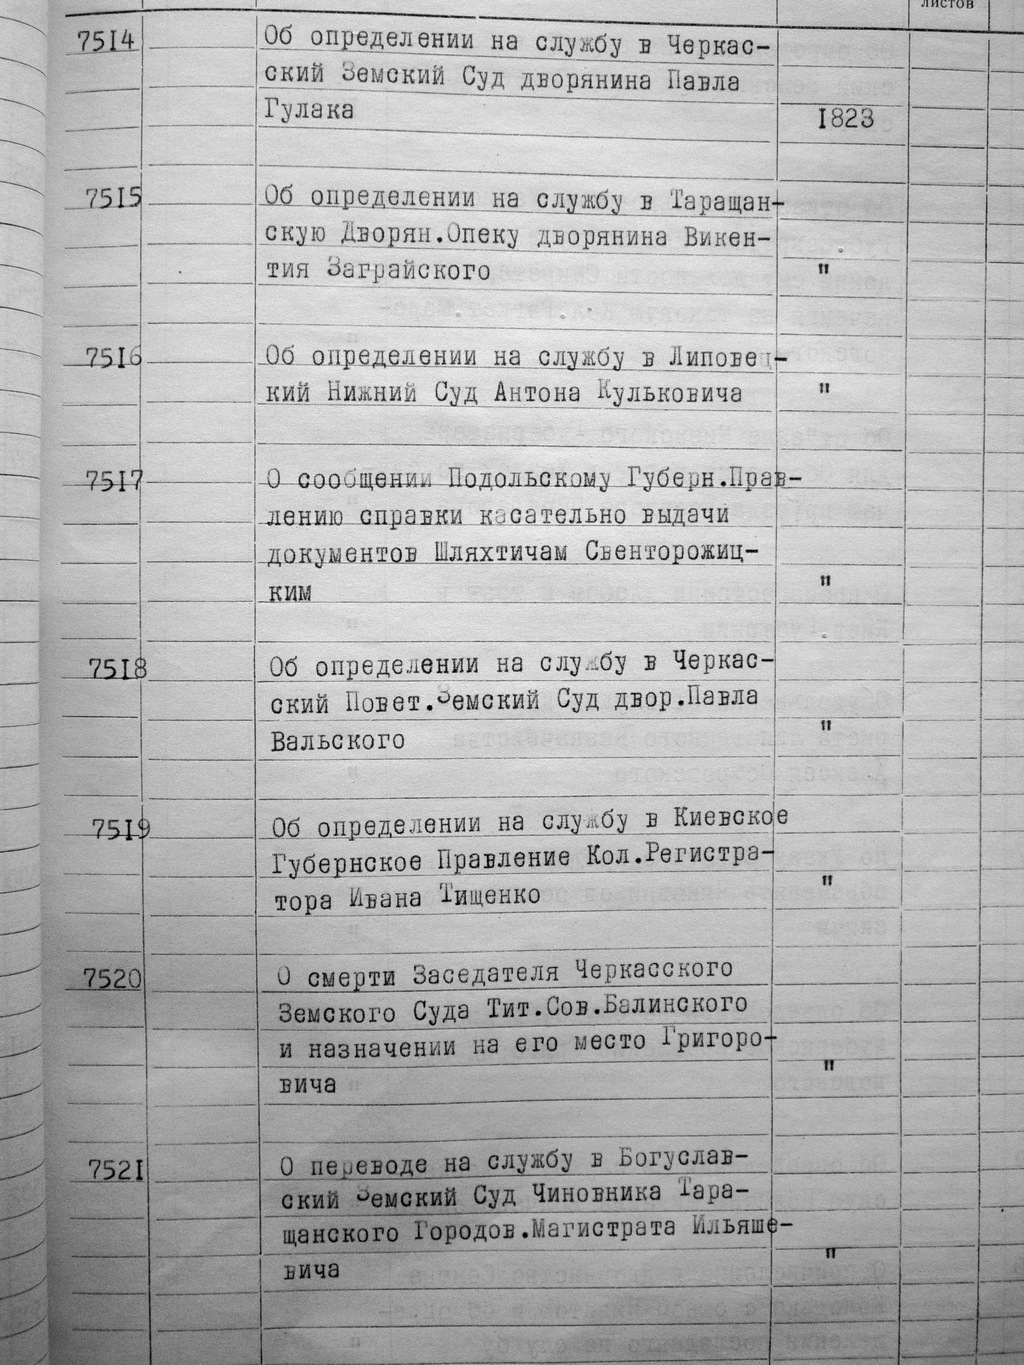 листов
7514 Об определении на службу в Черкас-
ский Земский Суд дворянина Павла
Гулака 1823
7515 Об определении на службу в Таращан-
скую Дворян.Опеку дворянина Викен-
тия Заграйского "
7516 Об определении на службу в Липовец-
кий Нижний Суд Антона Кульковича "
7517 О сообщении Подольскому Губерн.Прав-
лению справки касательно выдачи
документов Шляхтичам Свенторожиц-
ким "
7518 Об определении на службу в Черкас-
ский Повет.Земский Суд двор.Павла
Вальского "
7519 Об определении на службу в Киевское
Губернское Правление Кол.Регистра-
тора Ивана Тищенко "
7520 О смерти Заседателя Черкасского
Земского Суда Тит.Сов.Балинского
и назначении на его место Григоро-
вича "
7521 О переводе на службу в Богуслав-
ский Земский Суд Чиновника Тара-
щанского Городов.Магистрата Ильяше-
вича "